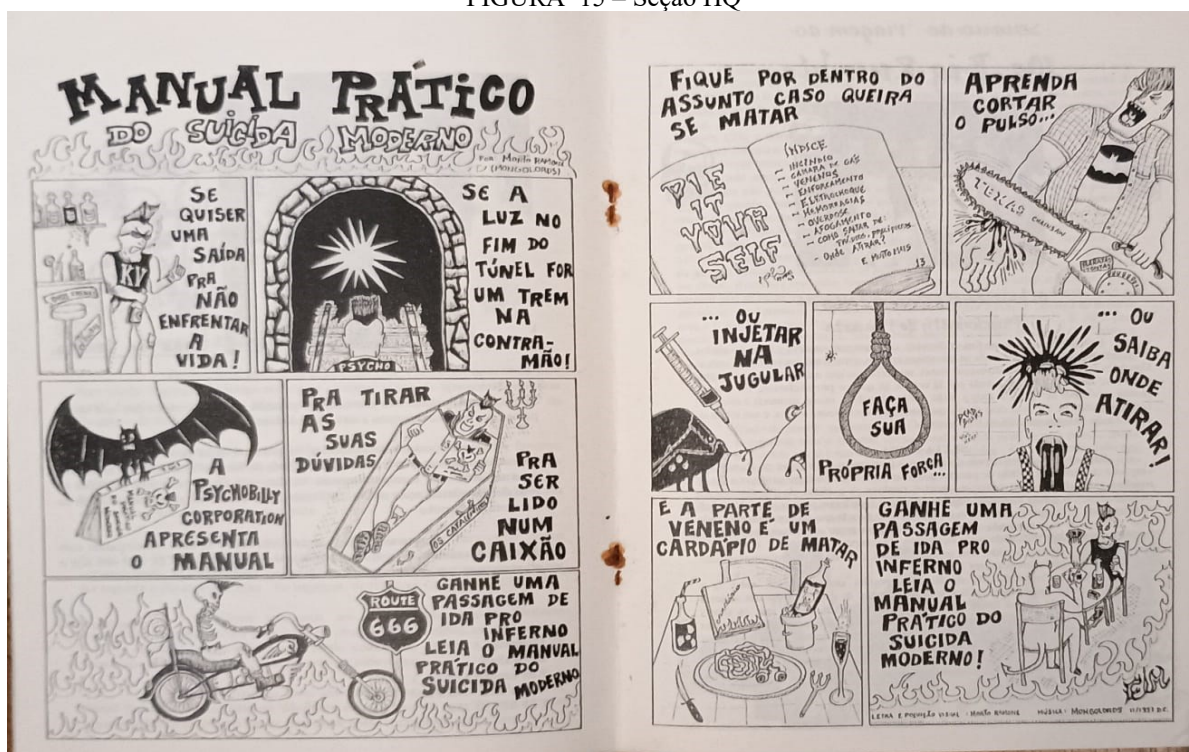 FIGURA 15 – Seção HQ
MANUAL PRÁTICO
DO SUICÍDA MODERNO
POR MORTO RAMONE
(MONGOLORDS)
SE
QUISER
UMA
SAÍDA
PRA
NÃO
ENFRENTAR
A
VIDA!
KV
SE A
LUZ NO
FIM DO
TÚNEL FOR
UM TREM
NA
CONTRA-
MÃO!
PSYCHO
A
PSYCHOBILLY
CORPORATION
APRESENTA
O MANUAL
PRA TIRAR
AS
SUAS
DÚVIDAS
PRA
SER
LIDO
NUM
CAIXÃO
OS CATALÉPTICOS
ROUTE
666
GANHE UMA
PASSAGEM DE
IDA PRO
INFERNO
LEIA O MANUAL
PRÁTICO DO
SUICIDA MODERNO
FIQUE POR DENTRO DO
ASSUNTO CASO QUEIRA
SE MATAR
DIE
IT
YOUR
SELF
ÍNDICE
INCÊNDIO
CÂMARA DE GÁS
VENENOS
ENFORCAMENTO
ELETROCHOQUE
HEMORRAGIAS
OVERDOSE
AFOGAMENTO
COMO SALTAR DE:
ONDE ATIRAR?
E MUITO MAIS
13
APRENDA
CORTAR
O PULSO...
TEXAS
... OU
INJETAR
NA
JUGULAR
FAÇA
SUA
PRÓPRIA FORCA...
... OU
SAIBA
ONDE
ATIRAR!
E A PARTE DE
VENENO É UM
CARDÁPIO DE MATAR
GANHE UMA
PASSAGEM
DE IDA PRO
INFERNO
LEIA O
MANUAL
PRÁTICO DO
SUICIDA
MODERNO!
LETRA E POLUIÇÃO VISUAL: MORTO RAMONE MÚSICA: MONGOLORDS